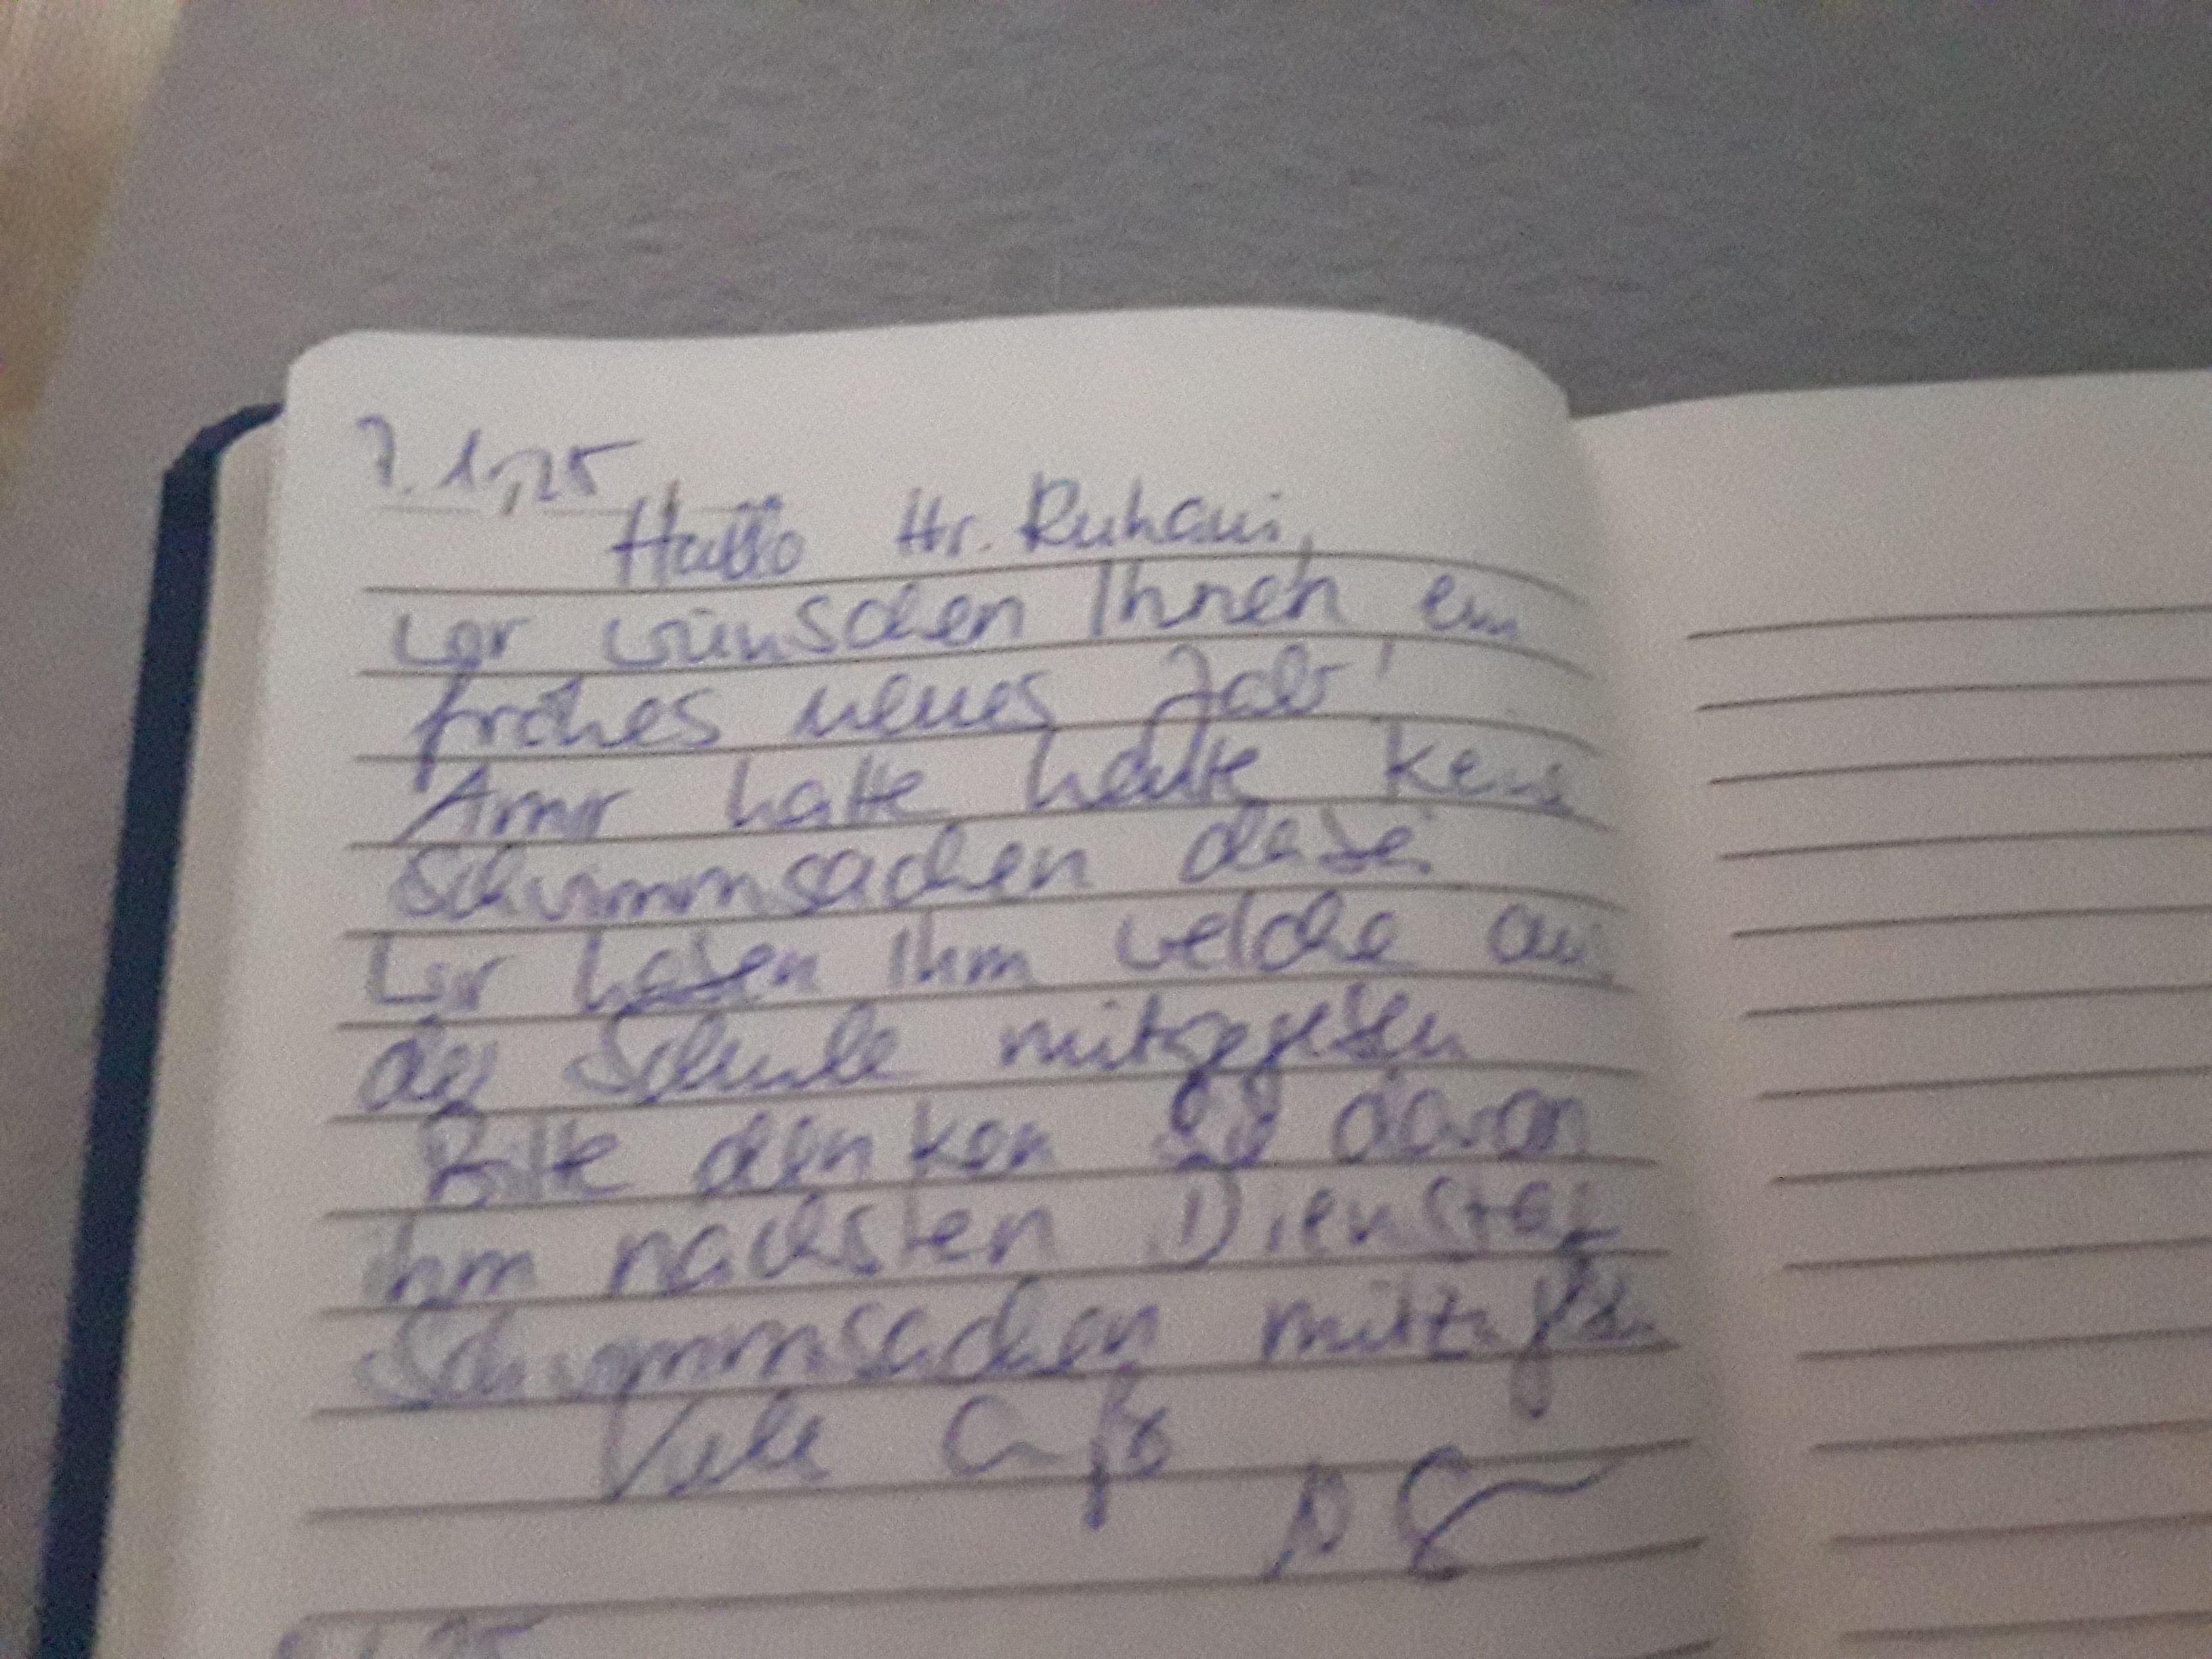 7.1.25
Hallo Hr. Ruhani,
wir wünschen Ihnen ein
frohes neues Jahr!
Amir hatte heute keine
Schwimmsachen dabei
Wir haben ihm welche aus
der Schule mitgegeben
Bitte denken Sie daran
ihm nächsten Dienstag
Schwimmsachen mitzugeben
Viele Grüße